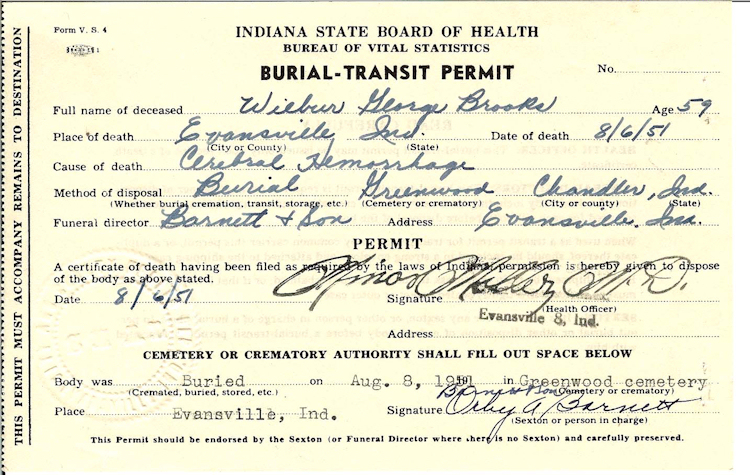 Form V. S. 4
INDIANA STATE BOARD OF HEALTH
BUREAU OF VITAL STATISTICS
BURIAL-TRANSIT PERMIT
No.
Full name of deceased Wilbur George Brooks Age 59
Place of death Evansville, Ind. Date of death 8/6/51
(City or County) (State)
Cause of death Cerebral Hemorrhage
Method of disposal Burial Greenwood Chandler, Ind.
(Whether burial cremation, transit, storage, etc.) (Cemetery or crematory) (City or county) (State)
Funeral director Barnett & Son Address Evansville, Ind.
PERMIT
A certificate of death having been filed as required by the laws of Indiana, permission is hereby given to dispose
of the body as above stated.
Date 8/6/51 Signature M.D.
(Health Officer)
Evansville 8, Ind.
Address
CEMETERY OR CREMATORY AUTHORITY SHALL FILL OUT SPACE BELOW
Body was Buried on Aug. 8, 1951 in Greenwood cemetery
(Cremated, buried, stored, etc.) (Cemetery or crematory)
Barnett & Son
Place Evansville, Ind. Signature Orby A Barnett
(Sexton or person in charge)
This Permit should be endorsed by the Sexton (or Funeral Director where there is no Sexton) and carefully preserved.
THIS PERMIT MUST ACCOMPANY REMAINS TO DESTINATION